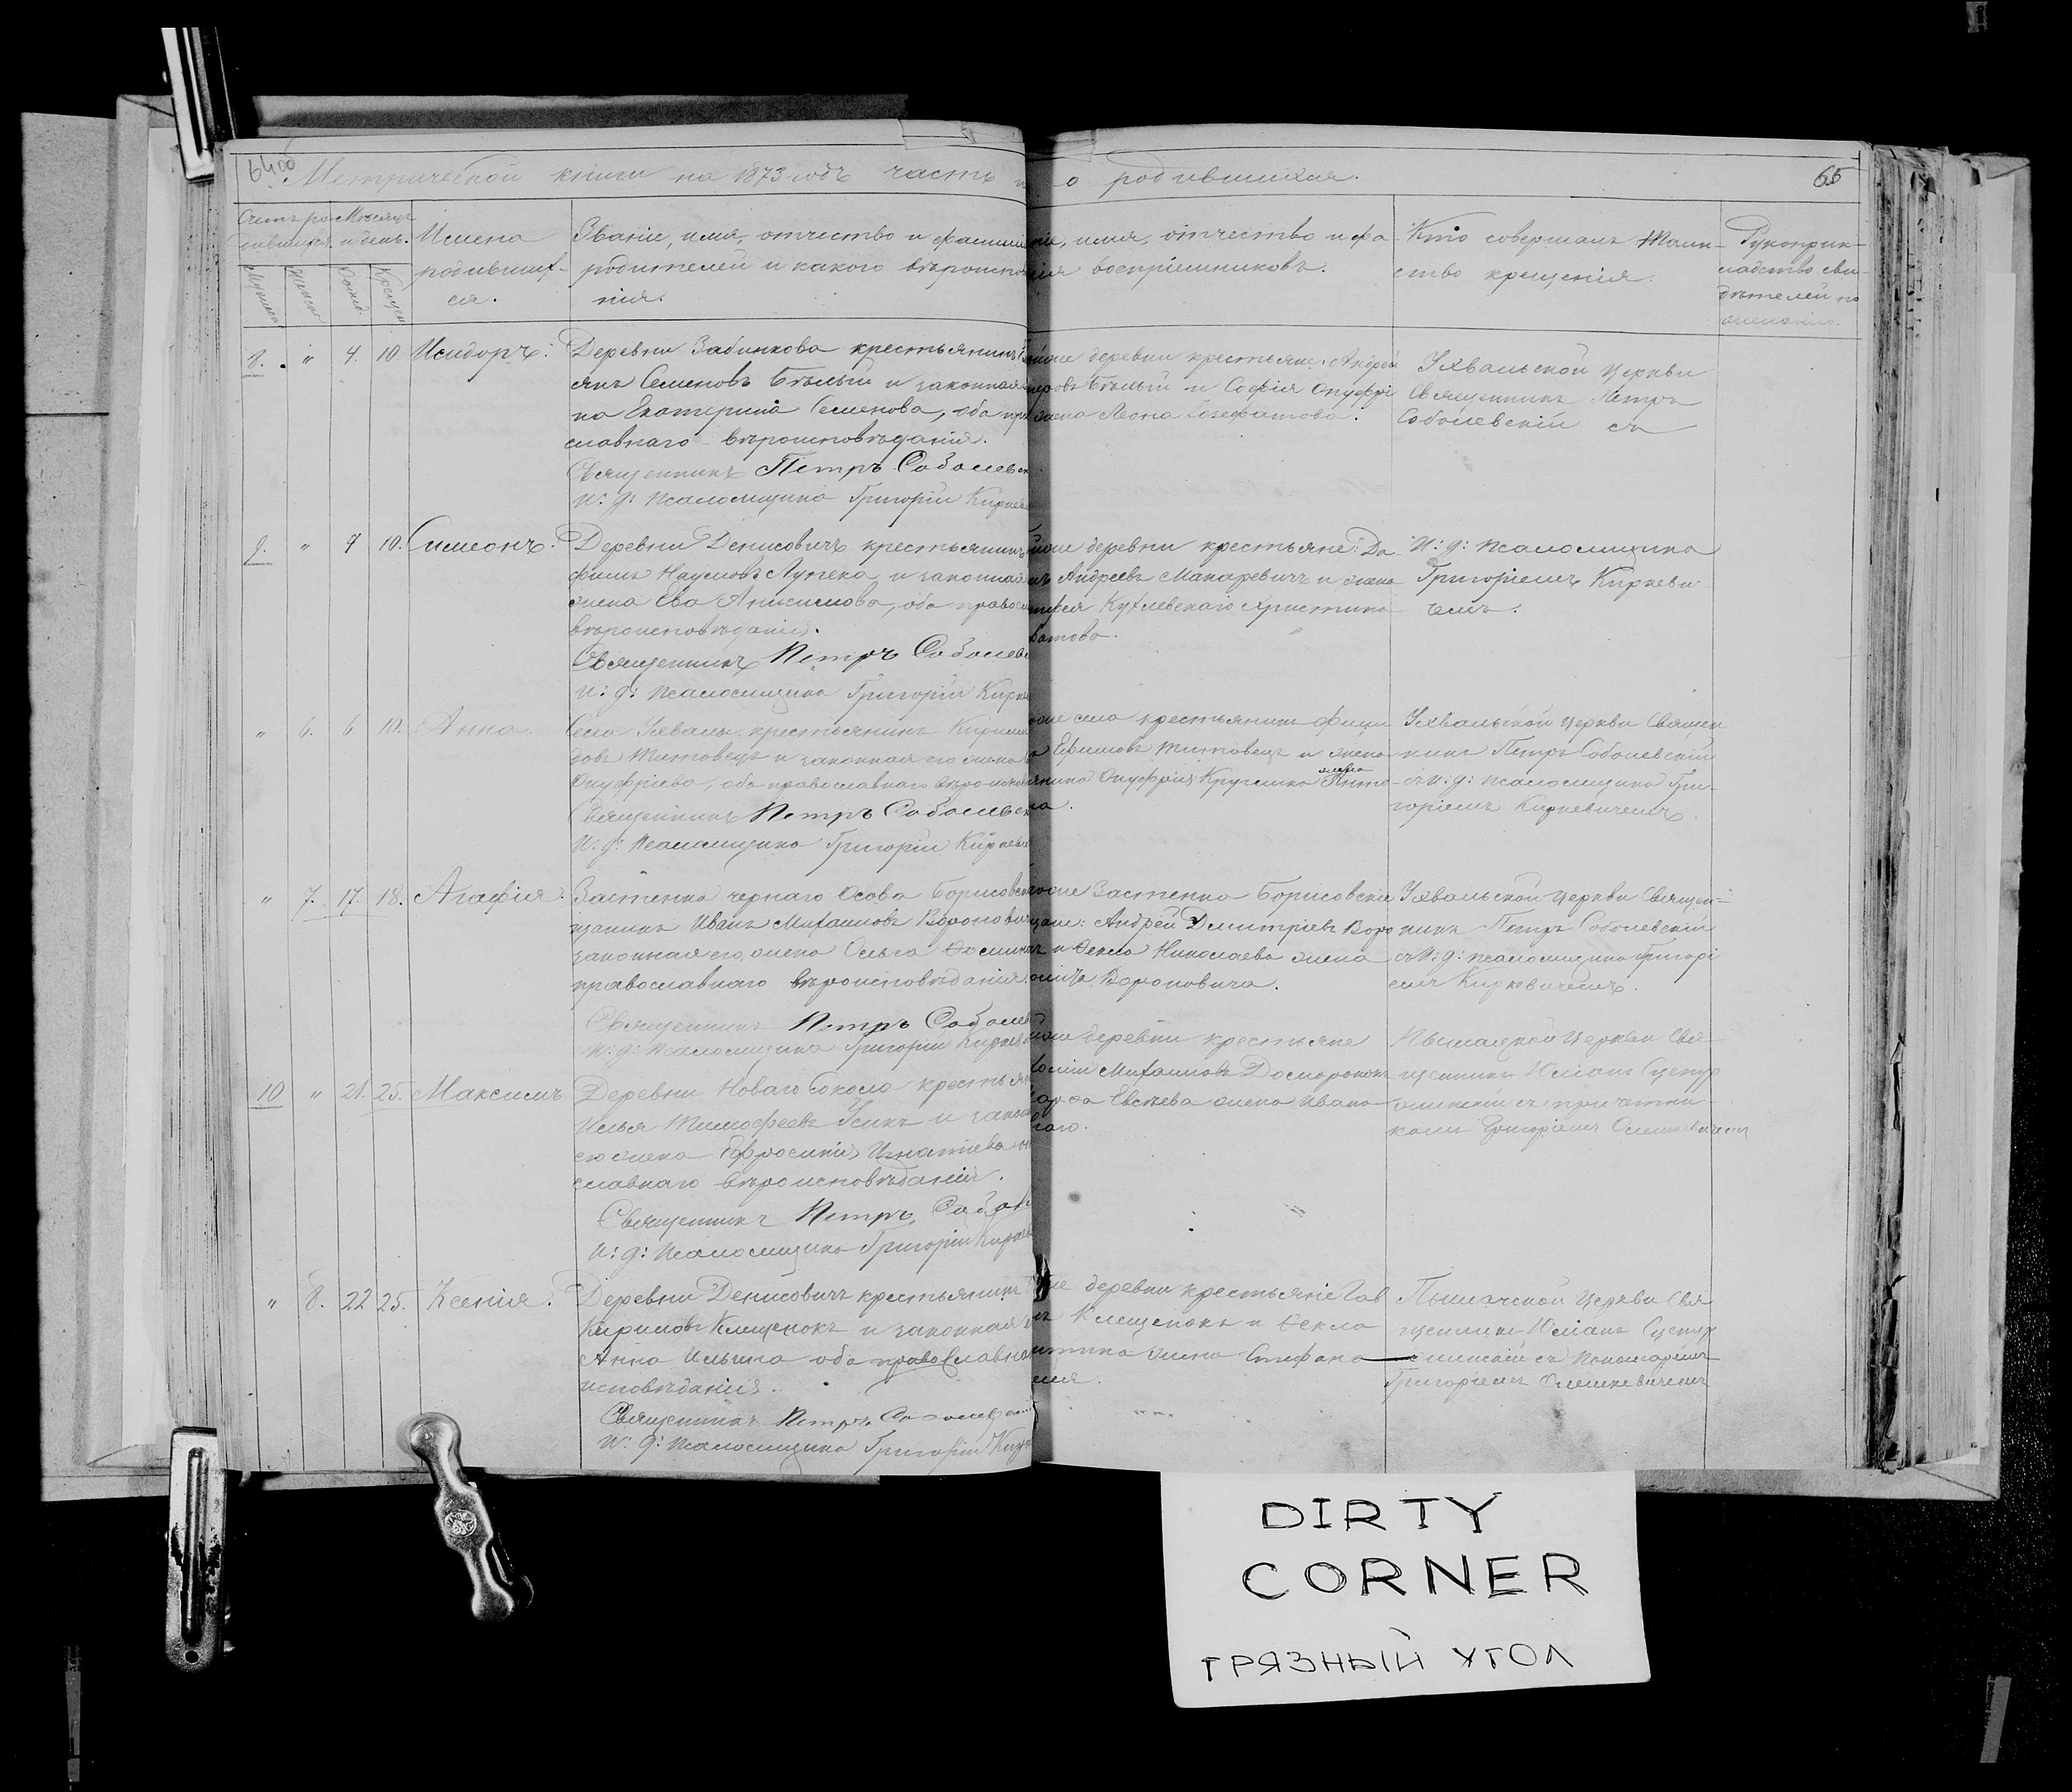 64об
Метрической книги на 1873 годъ часть
о родившихся.
65
Счетъ ро- Мѣсяцъ
дившихъ. и день.
Мужеск.
Женск.
Рожд.
Крещен.
Имена
родивших-
ся.
Званіе, имя, отчество и фамилія
родителей и какого вѣроиспов
нія.
ніе, имя, отчество и фа
лія воспріемниковъ.
Кто совершалъ Таин-
ство крещенія.
Рукоприк-
ладство сви-
дѣтелей по
желанію.
8. " 4. 10. Исидоръ.
Деревни Забинкова крестьянинъ
янъ Семеновъ Бѣлый и законная
на Екатерина Семенова, оба пра
славнаго вѣроисповѣданія.
Священникъ Петръ Соболевск
И: д: Псаломщика Григорій Киркев
деревни крестьяне: Андрей
Бѣлый и Софія Онуфрі
жена Леона Іозефатова.
Ухвальской церкви
Священникъ Петръ
Соболевскій съ
9. " 9 10. Симеонъ.
Деревни Денисовичъ крестьянинъ
фимъ Наумовъ Лучека и законная
жена Ева Анисимова, оба правосл
вѣроисповѣданія.
Священникъ Петръ Соболевс
И: д: Псаломщика Григорій Кирке
деревни крестьяне: Да
Андреевъ Макаревичъ и жена
Кухлевскаго Христина
батова.
И: д: Псаломщика
Григоріемъ Киркеви
чемъ.
" 6. 6 10. Анна.
Села Ухвалы крестьянинъ Кирилл
довъ Титовецъ и законная его жена
Онуфріева, оба православнаго вѣроиспов
Священникъ Петръ Соболевск
И: д: Псаломщика Григорій Киркев
села крестьянинъ Фили
Ефимовъ Титовецъ и жена
янина Онуфрія Кругелика жена Анто-
на.
Ухвальской церкви Священ
никъ Петръ Соболевскій
съ И: д: псаломщика Гри-
горіемъ Киркевичемъ.
" 7. 17. 18. Агафія.
Застенка чернаго Осова Борисовск
щанинъ Иванъ Михаиловъ Воронович
законная его жена Ольга Ѳомина
православнаго вѣроисповѣданія.
Священникъ Петръ Соболев
И: д: Псаломщика Григорій Киркев
Застенка Борисовски
щане: Андрей Димитріевъ Воро
и Ѳекла Николаева жена
Вороновича.
Ухвальской церкви Священ-
никъ Петръ Соболевскій
съ И: д: псаломщика Григорі
емъ Киркевичемъ.
10 " 21. 25. Максимъ
Деревни Новаго Сокола крестьян
Илья Тимофеевъ Усикъ и закон
его жена Ефросинія Игнатіева
славнаго вѣроисповѣданія.
Священникъ Петръ Собол
И: д: Псаломщика Григорій Кирке
деревни крестьяне
Михаиловъ
Евсѣева жена Ивана
Пышачской церкви Свя-
щенникъ Юліанъ
съ причетни-
комъ Григоріемъ Олешкевичемъ
" 8. 22 25. Ксенія.
Деревни Денисовичъ крестьянинъ
Кириловъ Клещенокъ и законная
Анна Ильина оба православна
исповѣданія.
Священникъ Петръ Соболевскій
И: д: Псаломщика Григорій Кир
деревни крестьяне Гав
Клещенокъ и Ѳекла
жена Стефана
Пышачской церкви Свя
щенникъ Юліанъ
съ Пономаремъ
Григоріемъ Олешкевичемъ
DIRTY
CORNER
ГРЯЗНЫЙ УГОЛ